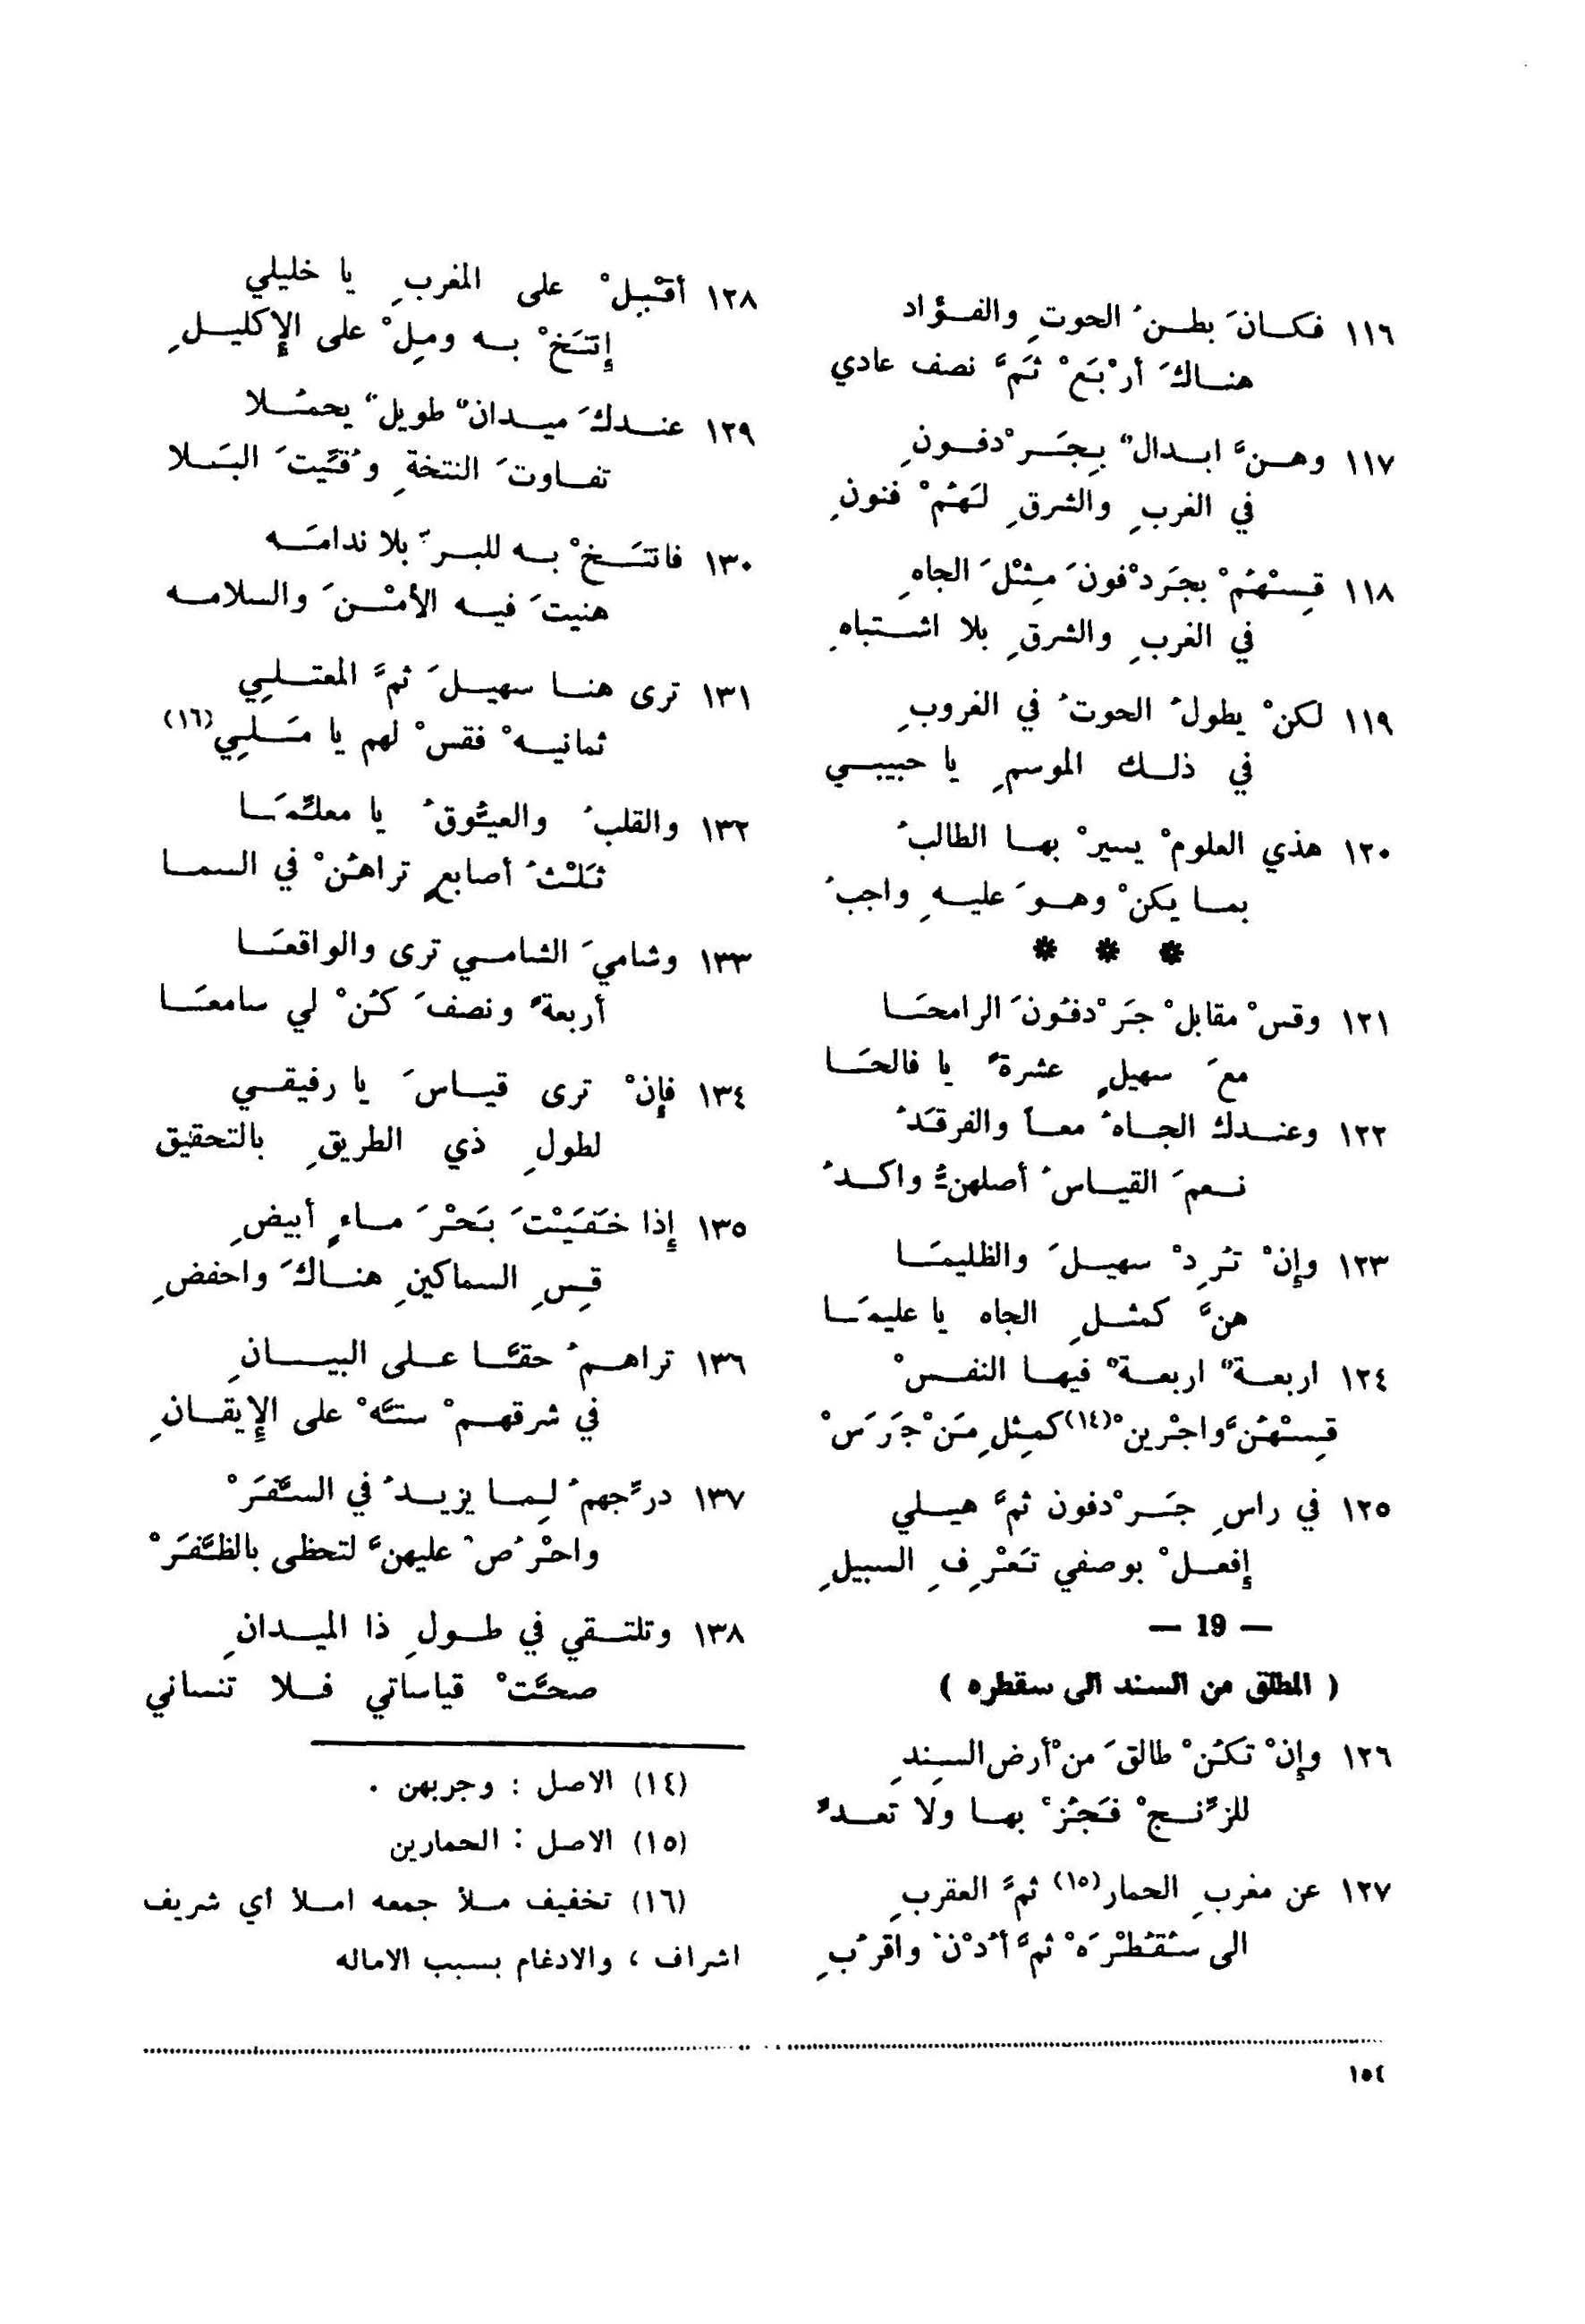 ١١٦ فكـانَ بطـنُ الحوتِ والفـؤاد
هنـاكَ أرْبَعْ ثَمَّ نصف عادي
١١٧ وهـنَّ ابـدالٌ بِجَـرْدفـونِ
في الغربِ والشرقِ لَهُمْ فنونِ
١١٨ قِسْهُمْ بجَردْفونَ مِثْلَ الجاهِ
في الغربِ والشرقِ بلا اشـتباهِ
١١٩ لكنْ يطولُ الحوتُ في الغروبِ
في ذلـك الموسمِ يا حبيبـي
١٢٠ هذي العلومْ يسيرْ بهـا الطالبُ
بمـا يكنْ وهـوَ عليـهِ واجبُ
* * *
١٢١ وقسْ مقابلْ جَرْدفُونَ الرامحَـا
معَ سهيلٍ عشرةً يا فالحَـا
١٢٢ وعنـدك الجـاهُ معـاً والفرقَدُ
نـعمَ القيـاسُ أصلهنَّ واكـدُ
١٢٣ وإنْ تُرِدْ سهيـلَ والظليمَـا
هنَّ كمثـلِ الجاه يا عليمَـا
١٢٤ اربعـةٌ اربعـةْ فيهـا النفـسْ
قِسْهُنَّ واجْرينْ(١٤) كمِثْلِ مَنْ جَرَسْ
١٢٥ في راسِ جَـرْدفون ثمَّ هيـلي
إفعـلْ بوصفي تَعْرِفِ السبيلِ
— 19 —
( المطلق من السند الى سقطره )
١٢٦ وإنْ تكُنْ طالقَ منْ أرض السِندِ
للزِّنـجْ فَجُزْ بهـا ولا تعـدِّ
١٢٧ عن مغربِ الحمار(١٥) ثمَّ العقربِ
الى سُقُطْرَهْ ثمَّ أدْنُ واقرُبِ
١٢٨ أقْبِلْ على المغربِ يا خليلي
إنتَخْ بـه ومِلْ على الإكليـلِ
١٢٩ عنـدكَ ميـدانٌ طويلٌ يحمُـلا
تفـاوتَ النتخةِ وُقِّيتَ البَـلا
١٣٠ فانتَـخْ بـه للبـرِّ بلا ندامَـه
هنيتَ فيـه الأمْـنَ والسلامـه
١٣١ ترى هنـا سهيـلَ ثمَّ المعتـلِي
ثمانيـهْ فقسْ لهم يا مَـلِي(١٦)
١٣٢ والقلبُ والعيُّوقُ يا معلِّمَـا
ثَلْثُ أصابعٍ تراهُنْ في السمـا
١٣٣ وشاميَ الشامـي ترى والواقعَـا
أربعةً ونصفَ كُنْ لي سامعَـا
١٣٤ فإنْ ترى قيـاسَ يا رفيقـي
لطولِ ذي الطريقِ بالتحقيق
١٣٥ إذا خَفَيْتَ بَحْرَ مـاءٍ أبيضِ
قِسِ السماكينِ هنـاكَ واحفضِ
١٣٦ تراهـمُ حقـَّا عـلى البيـانِ
في شرقهـمْ ستَّهْ على الإيقـانِ
١٣٧ درِّجهمُ لِمـا يزيـدُ في السَّفَرْ
واحْرُصْ عليهنَّ لتحظى بالظَّفَرْ
١٣٨ وتلتـقي في طـولِ ذا الميـدانِ
صحَّتْ قياساتي فـلا تنساني
(١٤) الاصل : وجربهن .
(١٥) الاصل : الحمارين
(١٦) تخفيف مـلأ جمعه امـلأ أي شريف
اشراف ، والادغام بسبب الاماله
١٥٤